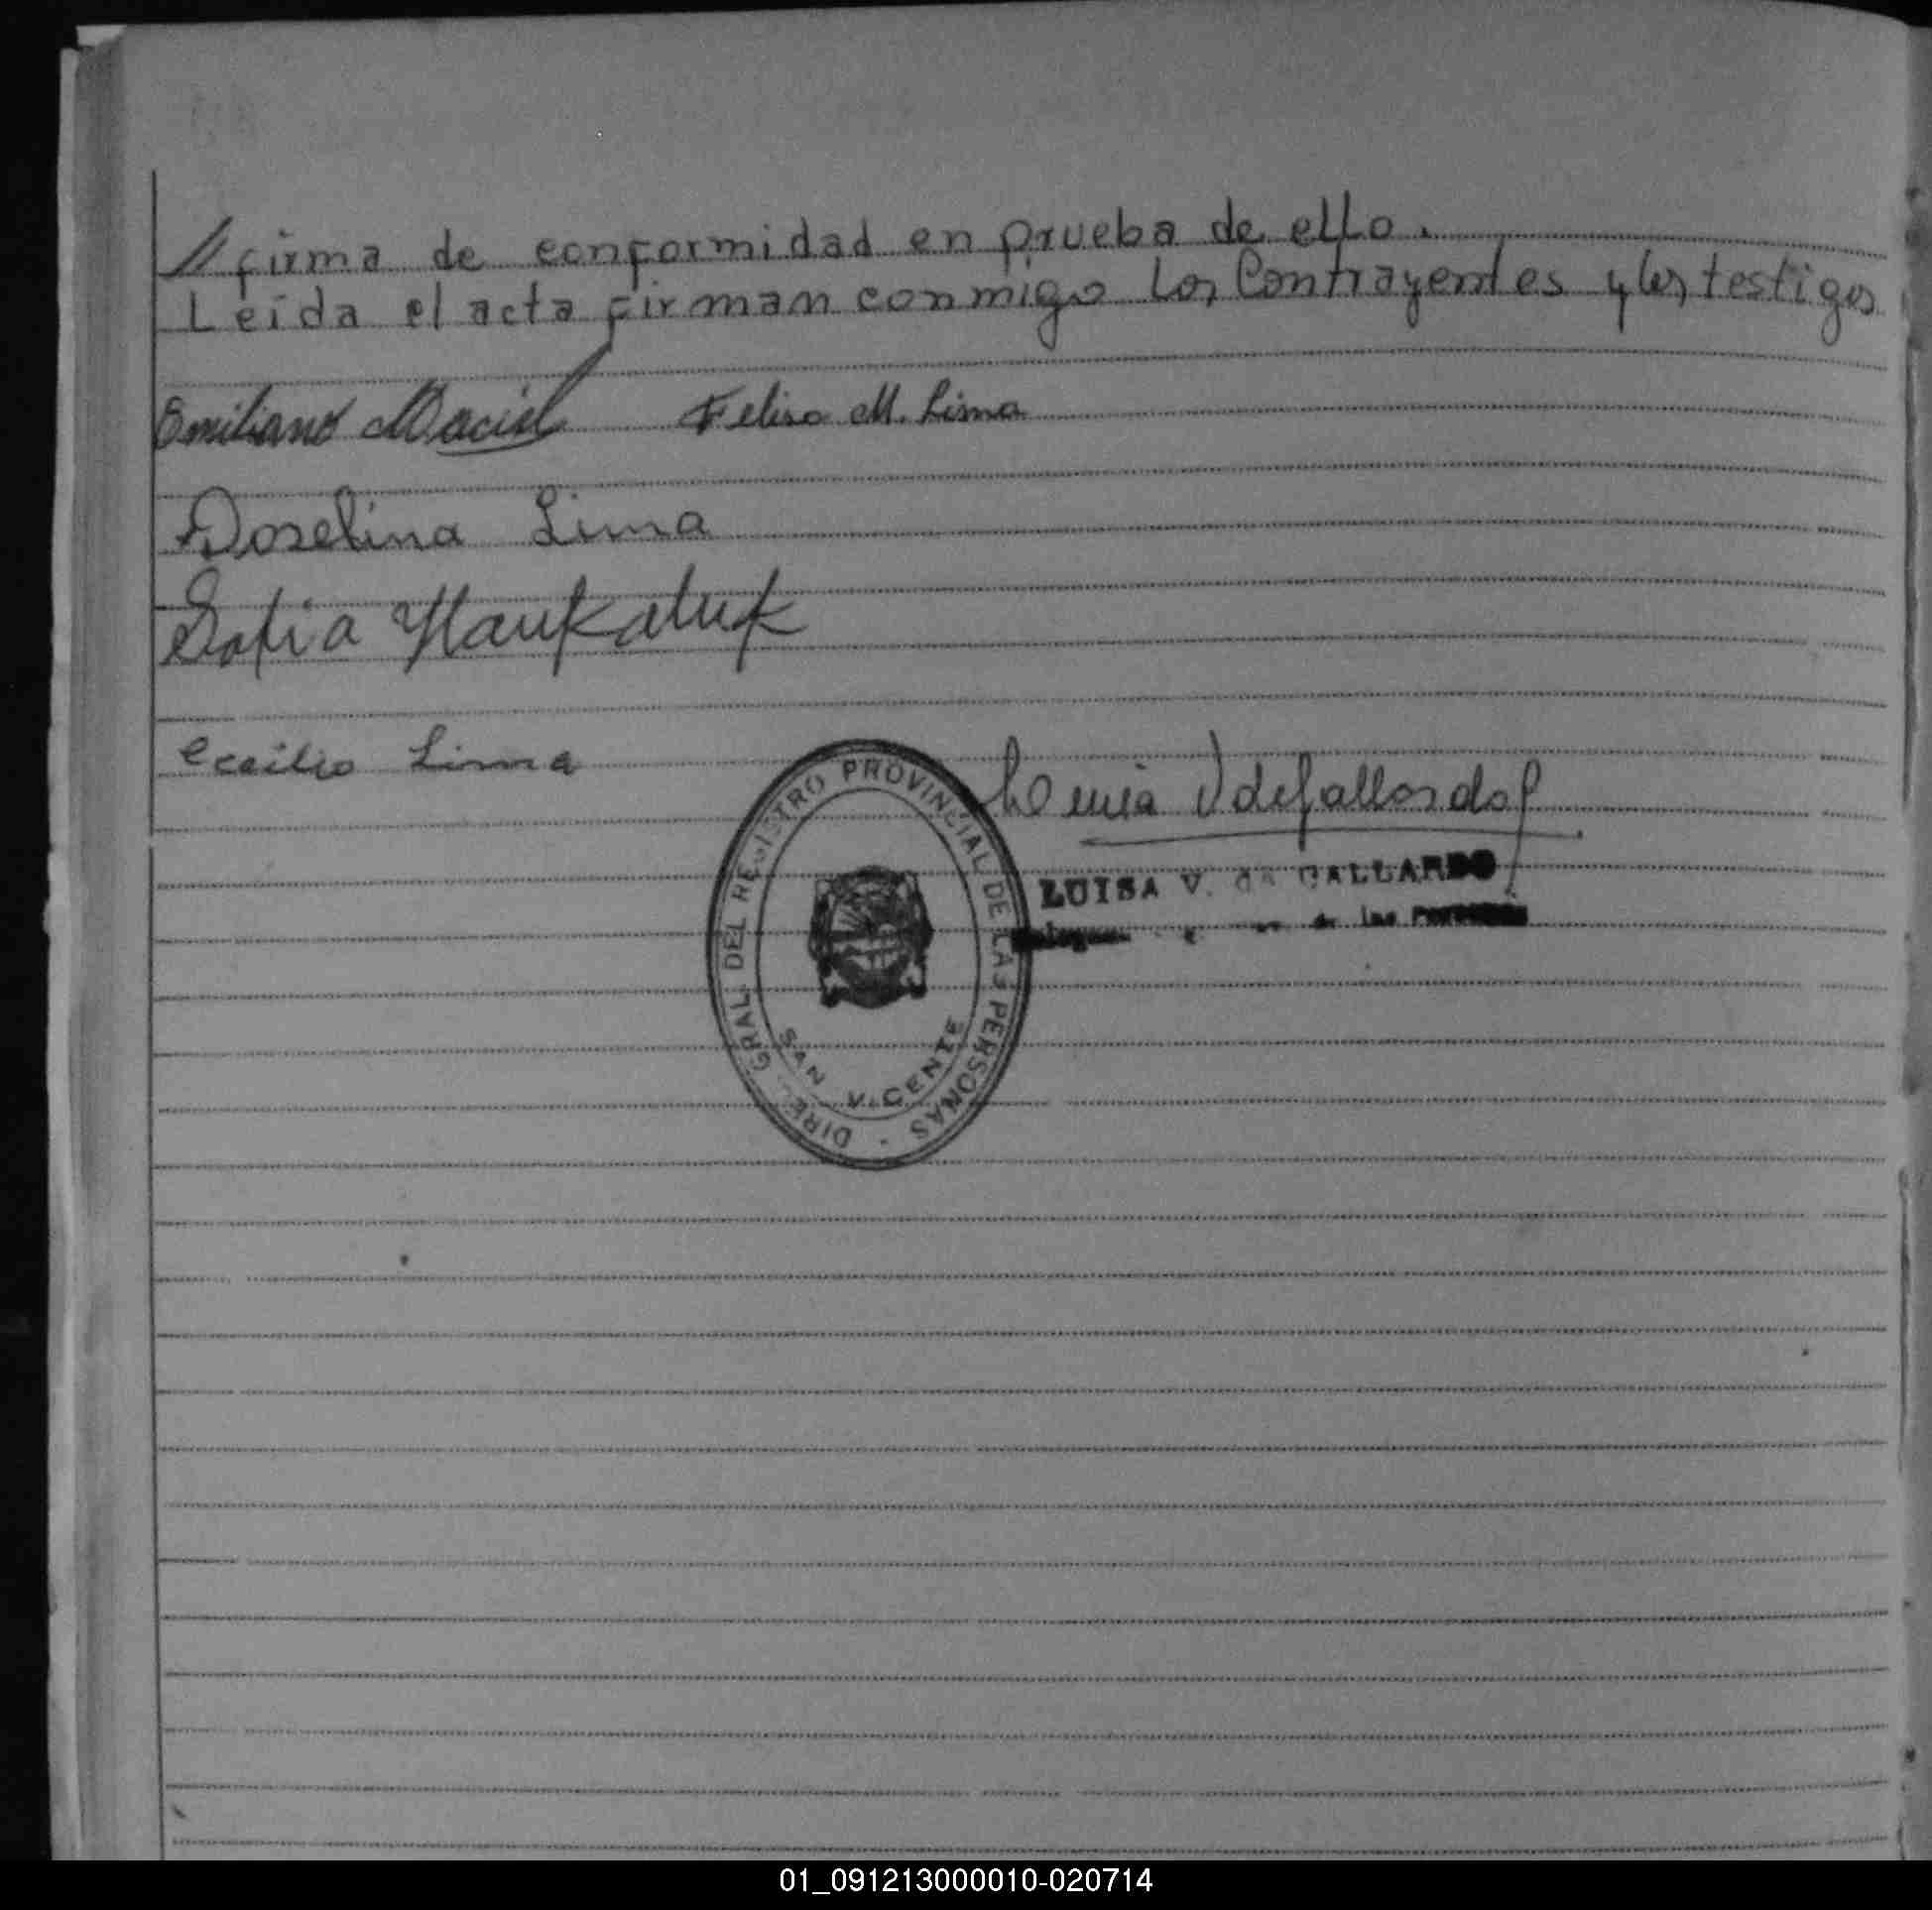 // firma de conformidad en prueba de ello.
Leída el acta firman conmigo los Contrayentes y los testigos
Emiliano Maciel Felisa M. Lima
Doselina Lima
Sofia
Cecilio Lima
V de Gallardo
LUISA V. de GALLARDO
de las
DIRE. GRAL. DEL REGISTRO PROVINCIAL DE LAS PERSONAS
SAN VICENTE
01_091213000010-020714